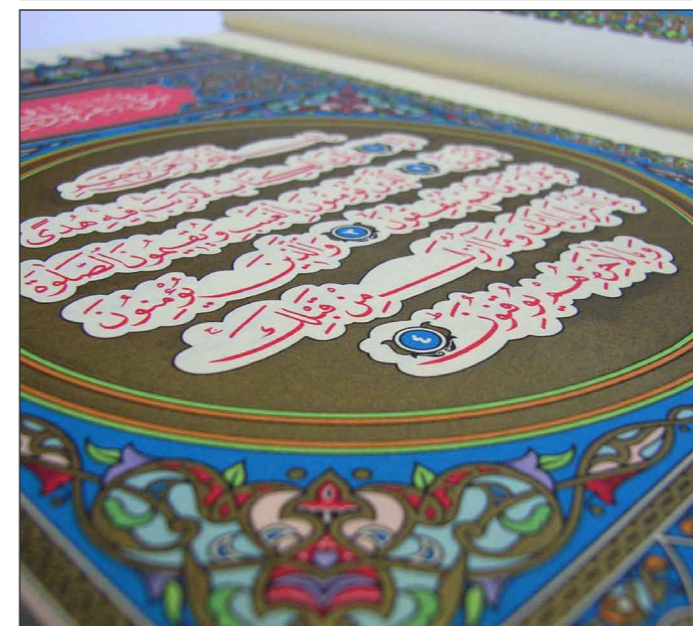 بِسْمِ اللَّهِ الرَّحْمَٰنِ الرَّحِيمِ
ذَٰلِكَ الْكِتَٰبُ لَا رَيْبَ فِيهِ هُدًى
لِلْمُتَّقِينَ ٢ الَّذِينَ يُؤْمِنُونَ بِالْغَيْبِ وَيُقِيمُونَ الصَّلَوٰةَ
وَمِمَّا رَزَقْنَٰهُمْ يُنْفِقُونَ ٣ وَالَّذِينَ يُؤْمِنُونَ
بِمَا أُنْزِلَ إِلَيْكَ وَمَا أُنْزِلَ مِنْ قَبْلِكَ
وَبِالْآخِرَةِ هُمْ يُوقِنُونَ ٤